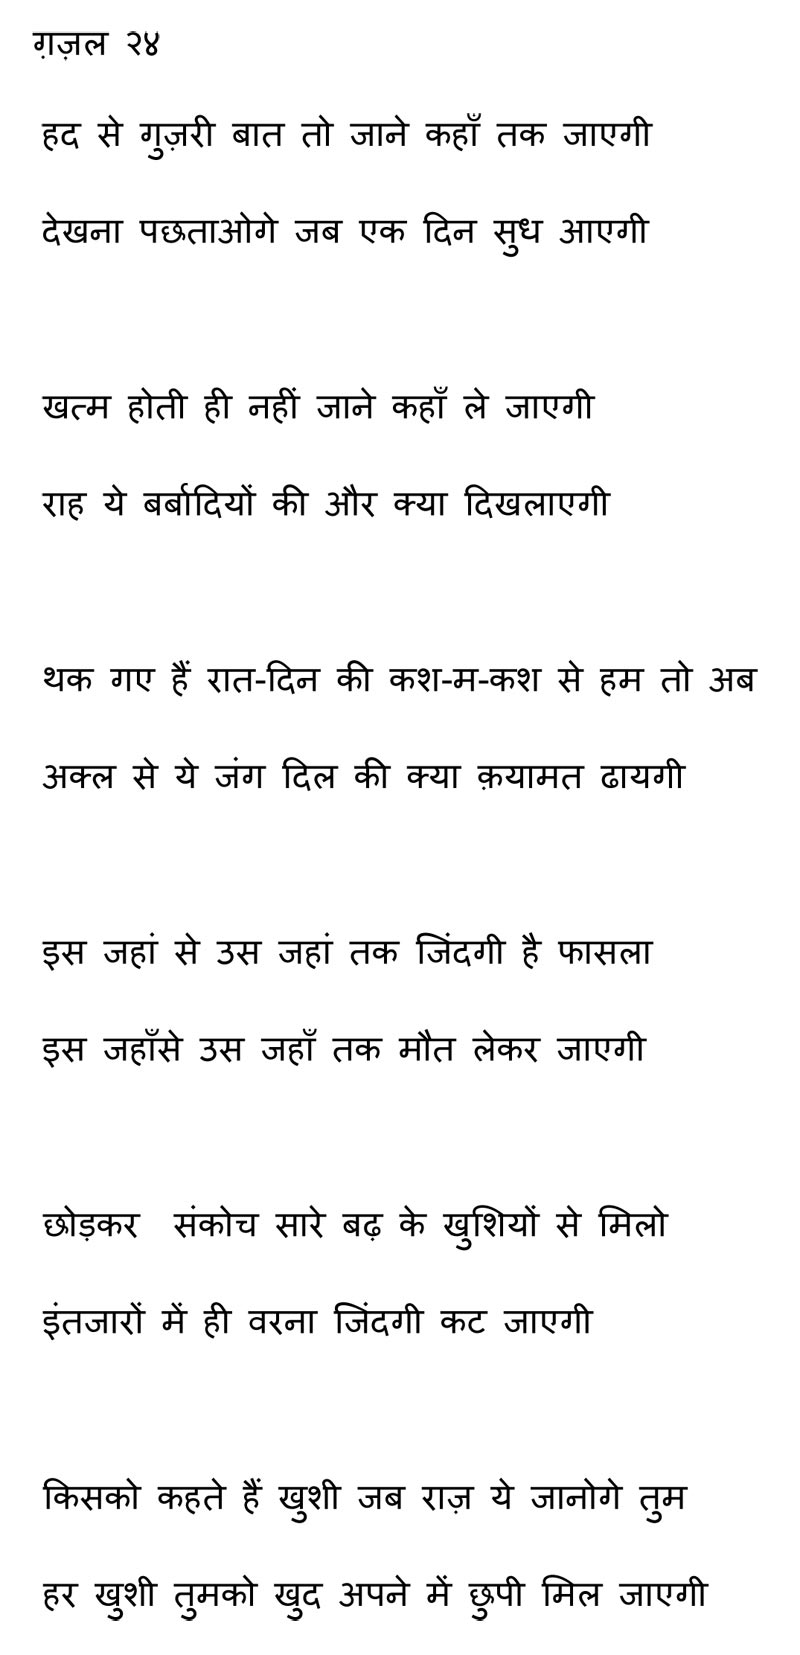 ग़ज़ल २४
हद से गुज़री बात तो जाने कहाँ तक जाएगी
देखना पछताओगे जब एक दिन सुध आएगी
खत्म होती ही नहीं जाने कहाँ ले जाएगी
राह ये बर्बादियों की और क्या दिखलाएगी
थक गए हैं रात-दिन की कश-म-कश से हम तो अब
अक्ल से ये जंग दिल की क्या क़यामत ढायगी
इस जहां से उस जहां तक जिंदगी है फासला
इस जहाँसे उस जहाँ तक मौत लेकर जाएगी
छोड़कर संकोच सारे बढ़ के खुशियों से मिलो
इंतजारों में ही वरना जिंदगी कट जाएगी
किसको कहते हैं खुशी जब राज़ ये जानोगे तुम
हर खुशी तुमको खुद अपने में छुपी मिल जाएगी